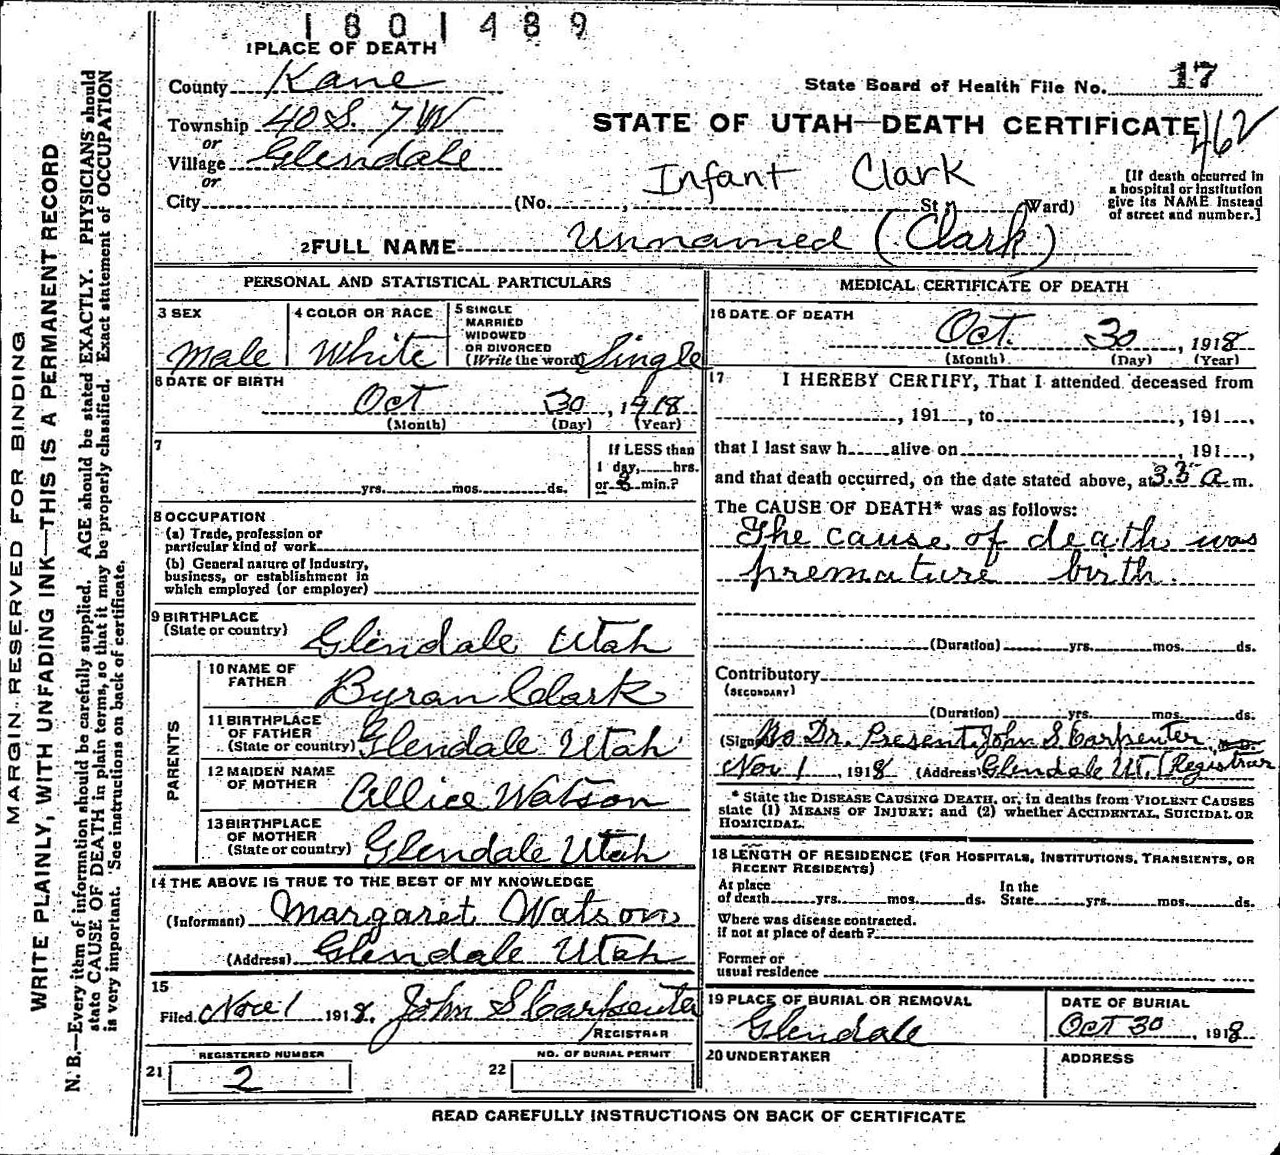 1801489
1 PLACE OF DEATH
County Kane
State Board of Health File No. 17
Township 40 S. 7 W
or
STATE OF UTAH—DEATH CERTIFICATE 462
Village Glendale
or
Infant Clark
City (No. , St. Ward)
[If death occurred in
a hospital or institution
give its NAME instead
of street and number.]
2 FULL NAME Unnamed (Clark)
PERSONAL AND STATISTICAL PARTICULARS
3 SEX
Male
4 COLOR OR RACE
White
5 SINGLE
MARRIED
WIDOWED
OR DIVORCED
(Write the word) Single
6 DATE OF BIRTH
Oct 30, 1918
(Month) (Day) (Year)
7
If LESS than
1 day, hrs.
yrs. mos. ds. or 3 min.?
8 OCCUPATION
(a) Trade, profession or
particular kind of work
(b) General nature of Industry,
business, or establishment in
which employed (or employer)
9 BIRTHPLACE
(State or country) Glendale Utah
PARENTS
10 NAME OF
FATHER Byran Clark
11 BIRTHPLACE
OF FATHER
(State or country) Glendale Utah
12 MAIDEN NAME
OF MOTHER Allice Watson
13 BIRTHPLACE
OF MOTHER
(State or country) Glendale Utah
14 THE ABOVE IS TRUE TO THE BEST OF MY KNOWLEDGE
(Informant) Margaret Watson
(Address) Glendale Utah
15
Filed Nov 1 1918. John S Carpenter
REGISTRAR
REGISTERED NUMBER
21 2
NO. OF BURIAL PERMIT
22
MEDICAL CERTIFICATE OF DEATH
16 DATE OF DEATH
Oct. 30, 1918
(Month) (Day) (Year)
17 I HEREBY CERTIFY, That I attended deceased from
, 191 , to , 191 ,
that I last saw h alive on , 191 ,
and that death occurred, on the date stated above, at 3.35 a m.
The CAUSE OF DEATH* was as follows:
The cause of death was
premature birth.
(Duration) yrs. mos. ds.
Contributory
(SECONDARY)
(Duration) yrs. mos. ds.
(Signed) No Dr. Present, John S Carpenter, M.D.
Nov 1, 1918 (Address) Glendale Ut. (Registrar
* State the DISEASE CAUSING DEATH, or, in deaths from VIOLENT CAUSES
state (1) MEANS OF INJURY; and (2) whether ACCIDENTAL, SUICIDAL OR
HOMICIDAL.
18 LENGTH OF RESIDENCE (FOR HOSPITALS, INSTITUTIONS, TRANSIENTS, OR
RECENT RESIDENTS)
At place In the
of death yrs. mos. ds. State yrs. mos. ds.
Where was disease contracted.
if not at place of death?
Former or
usual residence
19 PLACE OF BURIAL OR REMOVAL
Glendale
DATE OF BURIAL
Oct 30, 1918
20 UNDERTAKER
ADDRESS
READ CAREFULLY INSTRUCTIONS ON BACK OF CERTIFICATE
MARGIN RESERVED FOR BINDING
WRITE PLAINLY, WITH UNFADING INK—THIS IS A PERMANENT RECORD
N. B.—Every item of information should be carefully supplied. AGE should be stated EXACTLY. PHYSICIANS should
state CAUSE OF DEATH in plain terms, so that it may be properly classified. Exact statement of OCCUPATION
is very important. See instructions on back of certificate.